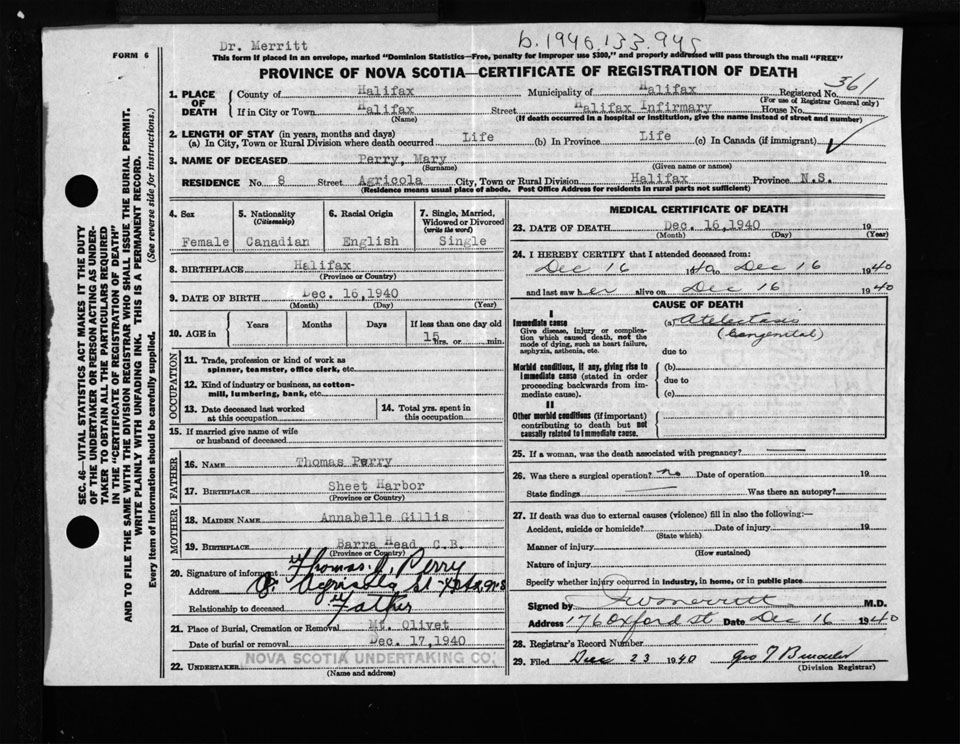 Dr. Merritt
b.1940.133.945
FORM 6
This form if placed in an envelope, marked "Dominion Statistics—Free, penalty for improper use $300," and properly addressed will pass through the mail "FREE"
PROVINCE OF NOVA SCOTIA—CERTIFICATE OF REGISTRATION OF DEATH
361
1. PLACE OF DEATH
County of Halifax Municipality of Halifax Registered No.
(For use of Registrar General only)
If in City or Town Halifax Street Halifax Infirmary House No.
(Name) (If death occurred in a hospital or institution, give the name instead of street and number)
2. LENGTH OF STAY (in years, months and days)
(a) In City, Town or Rural Division where death occurred Life (b) In Province Life (c) In Canada (if immigrant)
3. NAME OF DECEASED Perry, Mary
(Surname) (Given name or names)
RESIDENCE No. 8 Street Agricola City, Town or Rural Division Halifax Province N.S.
(Residence means usual place of abode. Post Office Address for residents in rural parts not sufficient)
4. Sex
Female
5. Nationality
(Citizenship)
Canadian
6. Racial Origin
English
7. Single, Married, Widowed or Divorced
(write the word)
Single
8. BIRTHPLACE Halifax
(Province or Country)
9. DATE OF BIRTH Dec. 16,1940
(Month) (Day) (Year)
10. AGE in
Years Months Days If less than one day old
15 hrs. or min.
OCCUPATION
11. Trade, profession or kind of work as
spinner, teamster, office clerk, etc.
12. Kind of industry or business, as cotton-
mill, lumbering, bank, etc.
13. Date deceased last worked
at this occupation
14. Total yrs. spent in
this occupation
15. If married give name of wife
or husband of deceased
FATHER
16. NAME Thomas Perry
17. BIRTHPLACE Sheet Harbor
(Province or Country)
MOTHER
18. MAIDEN NAME Annabelle Gillis
19. BIRTHPLACE Barra Head C.B.
(Province or Country)
20. Signature of informant Thomas J. Perry
Address 8. Agricola St
Relationship to deceased Father
21. Place of Burial, Cremation or Removal Mt. Olivet
Date of burial or removal Dec. 17,1940
22. UNDERTAKER NOVA SCOTIA UNDERTAKING CO.
(Name and address)
MEDICAL CERTIFICATE OF DEATH
23. DATE OF DEATH Dec. 16,1940 19
(Month) (Day) (Year)
24. I HEREBY CERTIFY that I attended deceased from:
Dec 16 1940 to Dec 16 1940
and last saw her alive on Dec 16 1940
CAUSE OF DEATH
I
Immediate cause
Give disease, injury or complication which caused death, not the mode of dying, such as heart failure, asphyxia, asthenia, etc.
(a) Atelectasis
(Congenital)
due to
Morbid conditions, if any, giving rise to immediate cause (stated in order proceeding backwards from immediate cause).
(b)
due to
(c)
II
Other morbid conditions (if important) contributing to death but not causally related to immediate cause.
25. If a woman, was the death associated with pregnancy?
26. Was there a surgical operation? no Date of operation 19
State findings Was there an autopsy?
27. If death was due to external causes (violence) fill in also the following:—
Accident, suicide or homicide? Date of injury 19
(State which)
Manner of injury
(How sustained)
Nature of injury
Specify whether injury occurred in industry, in home, or in public place
Signed by Merritt M.D.
Address 176 Oxford St Date Dec 16 1940
28. Registrar's Record Number
29. Filed Dec 23 1940
(Division Registrar)
SEC. 46—VITAL STATISTICS ACT MAKES IT THE DUTY
OF THE UNDERTAKER OR PERSON ACTING AS UNDER-
TAKER TO OBTAIN ALL THE PARTICULARS REQUIRED
IN THE "CERTIFICATE OF REGISTRATION OF DEATH"
AND TO FILE THE SAME WITH THE DIVISION REGISTRAR WHO SHALL ISSUE THE BURIAL PERMIT.
WRITE PLAINLY WITH UNFADING INK. THIS IS A PERMANENT RECORD.
Every item of information should be carefully supplied. (See reverse side for instructions.)